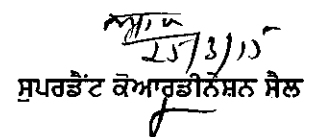 25/3/15
ਸੁਪਰਡੈਂਟ ਕੋਆਰਡੀਨੇਸ਼ਨ ਸੈਲ